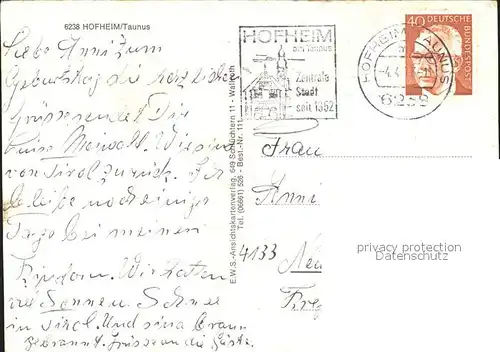 6238 HOFHEIM/Taunus
Liebe Anni! Zum
Geburtstag die herzlichen
Grüsse sendet Dir
von Tirol zurück. Ich
bleibe noch einige
Tage bei meinen
Kindern. Wir hatten
viel Sonne u. Schnee
in Tirol. Und sind braun
gebrannt. Grüsse an die Gäste.
E.W.S.-Ansichtskartenverlag, 649 Schlüchtern 11 - Wallroth
Tel. (06661) 526 - Best.-Nr. 111
HOFHEIM
am Taunus
Zentrale
Stadt
seit 1352
HOFHEIM TAUNUS
6238
40
DEUTSCHE
BUNDESPOST
Frau
Anni
4133
privacy protection
Datenschutz